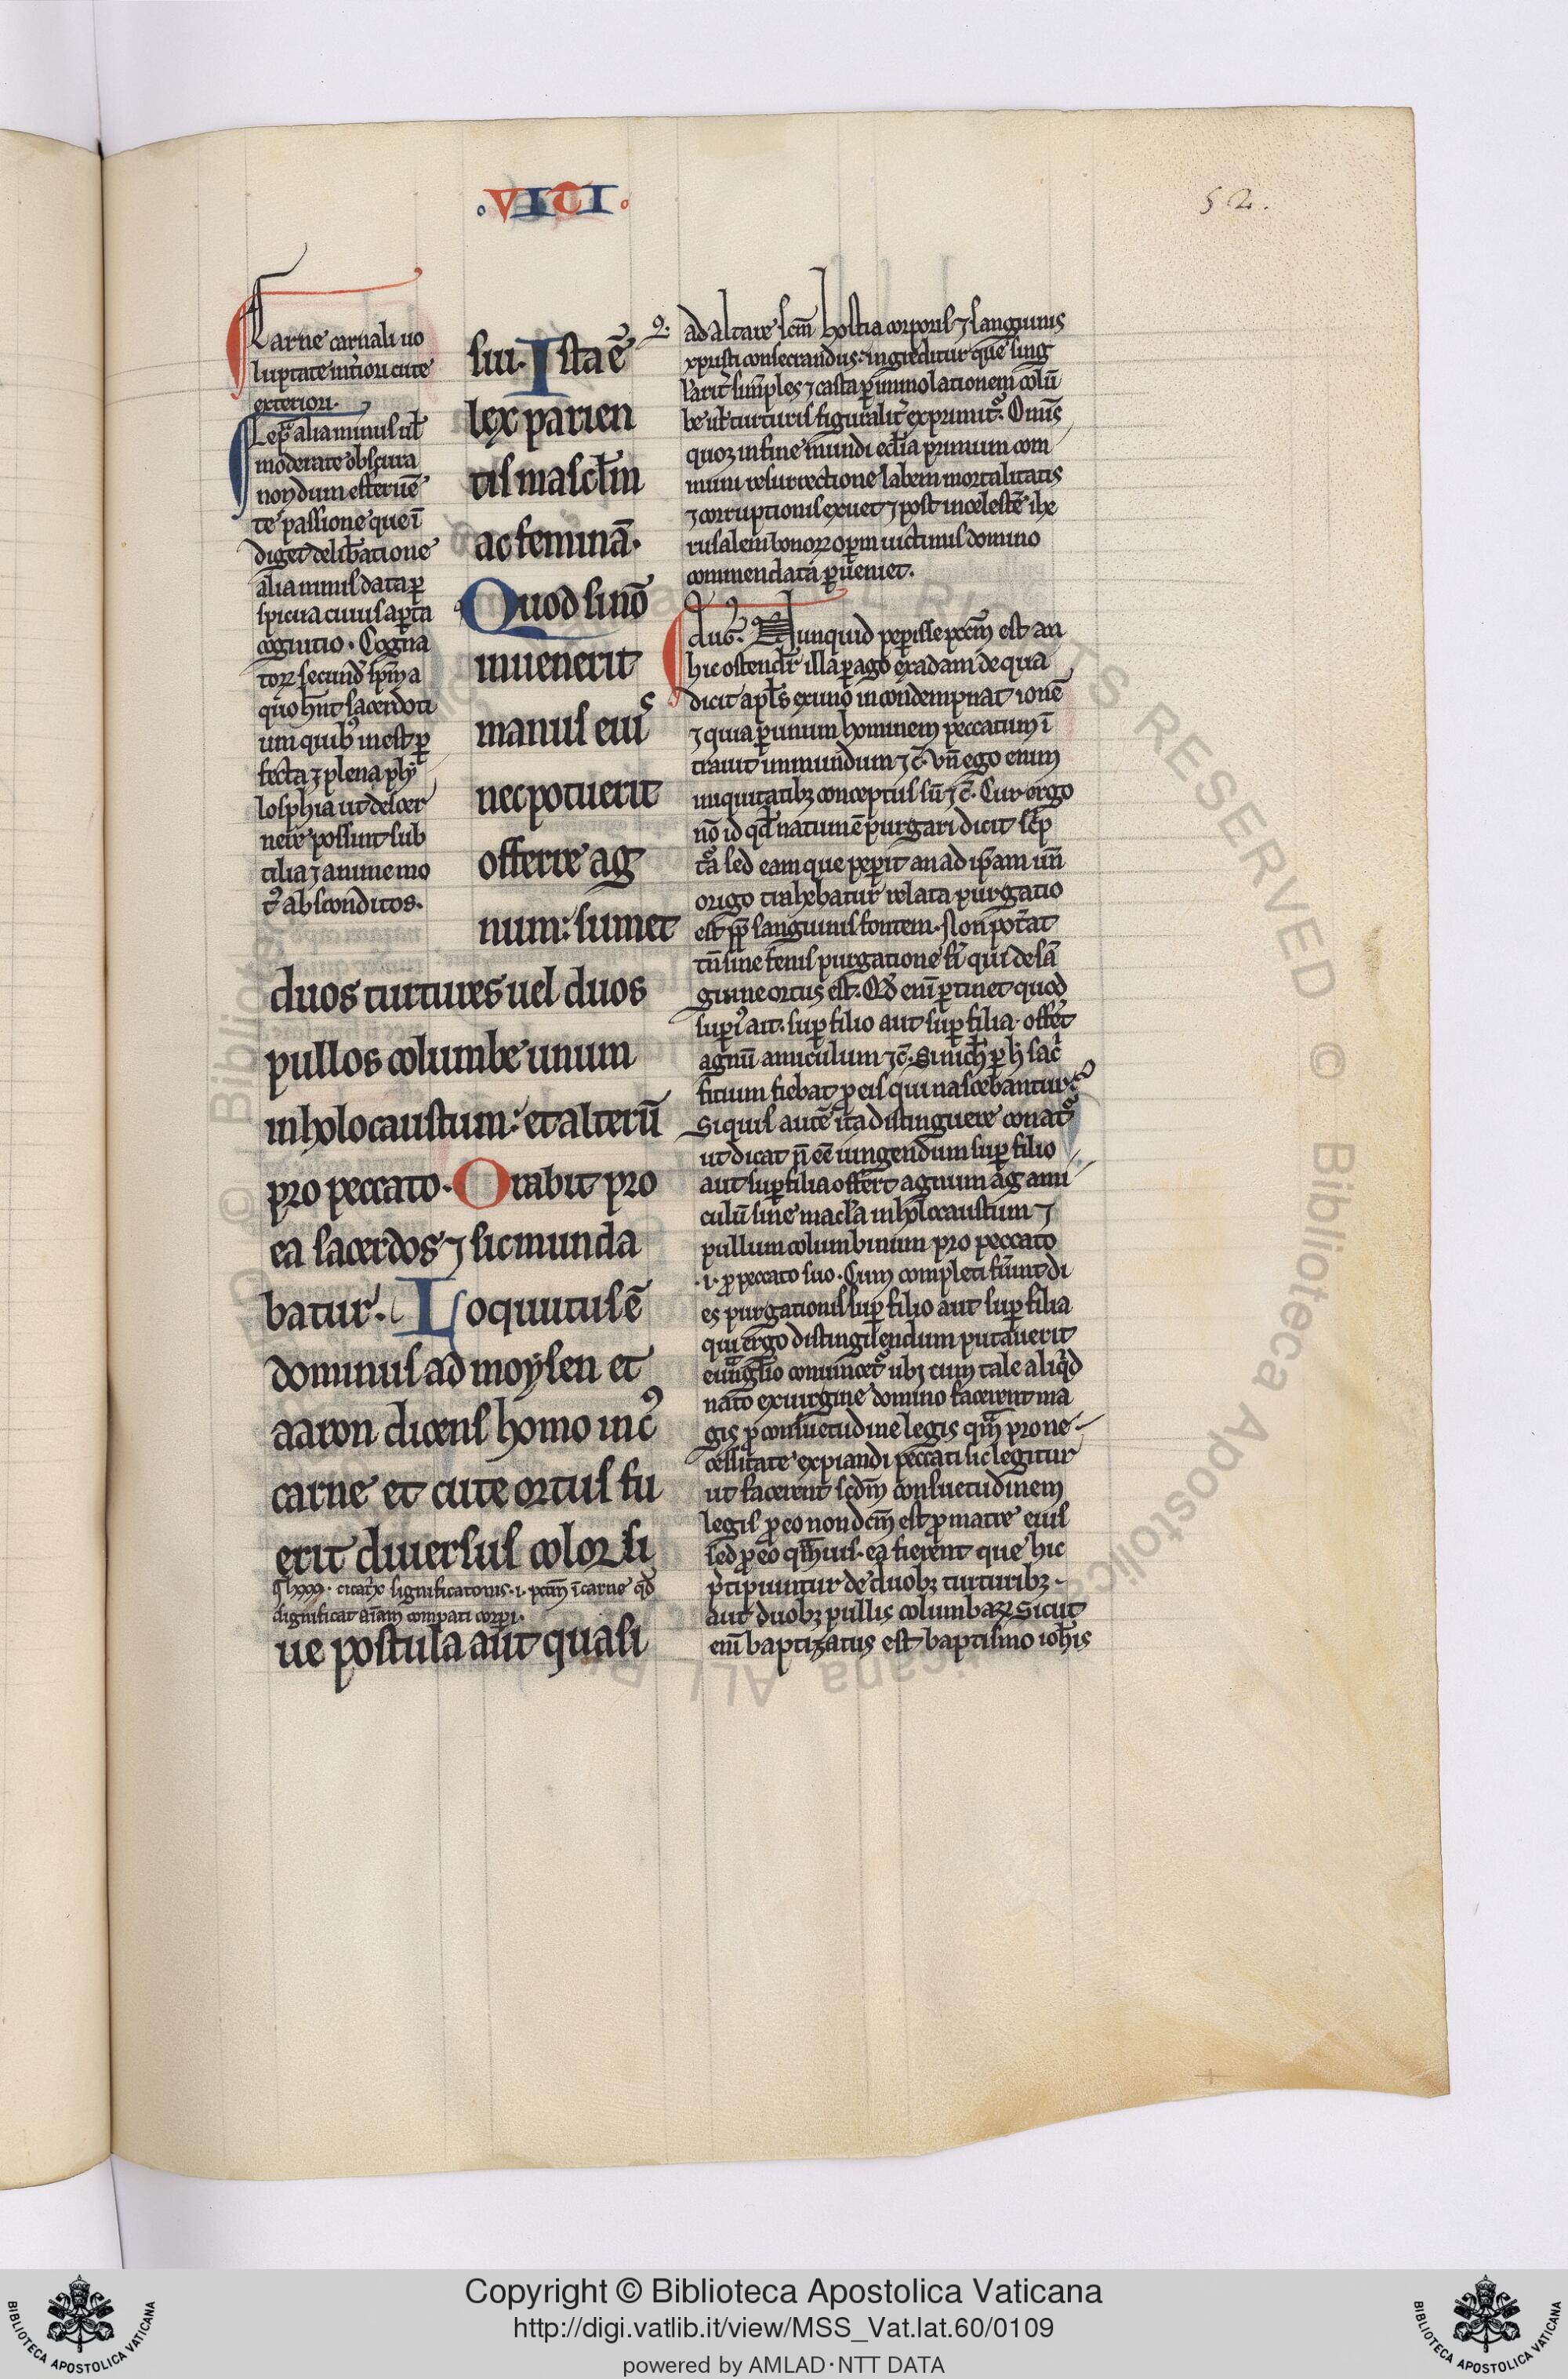 .VIII.
52.
Carne carnali uo
luptate interiori cute
exteriori.
Lepra alia minus uł
moderate obscura
nondum efferuen̄
te passione que ī
diget deliƀatione
alia nimis data ꝑ
spicua cuius aperta
cognitio. Cogna
toꝝ secund̄ sp̄m a
quo hn̄t sacerdoti
um quibꝰ inest ꝑ
fecta ⁊ plena phy
losphia ut descer
nere possint sub
tilia ⁊ anime mo
tꝰ absconditos.
sui. Ista ē
lex parien
tis mascłm
ac feminā.
Quod si nō
inuenerit
manus eius
nec potuerit
offerre ag
num: sumet
duos turtures uel duos
pullos columbe unum
in holocaustum: et alterū
pro peccato. Orabit pro
ea sacerdos ⁊ sic munda
batur. Loquutus ē
dominus ad moysen et
aaron dicens homo in cꝰ
carne et cute ortus fu
erit diuersus color si
significationis .i. pctm̄ ī carne qd̄
significat aīam compati corpi.
ue postula aūt quasi
ad altare scm̄ hostia corporis ⁊ sanguinis
xpristi consecrandus: ingreditur que sing
lariter simples ⁊ casta ꝑ immolationem colū
be uł turturis figuraliter exprimitᷣ. Omīs
quoꝫ in fine mundi ecłia primum com
muni resurrectione labem mortalitatis
⁊ corruptionis exuet ⁊ post in celestē ihe
rusalem bonoꝝ opeꝝ uictimis domino
commendata ꝑueniet.
Aug. Nunquid peperisse pctm̄ est an
hic ostenditur illa ꝓpago ex adam de qua
dicit apłs ex uno in condempnationē
⁊ quia ꝑ unum hominem peccatum ī
trauit in mundum ⁊ c̄. vn̄ ego enim
iniquitatibꝫ conceptus sū ⁊ c̄. Cur ergo
nō id qd̄ natum ē purgari dicit sc̄p
tᷓa sed eam que peperit an ad ip̄am un̄
origo trahebatur relata purgatio
est ꝓp̄ sanguinis fontem. Non pot̄at
tn̄ sine fetus purgatione fi̇̄ qui de sā
guine ortus est. Qd̄ enī ꝑtinet quod
supꝰ ait. suꝑ filio aut suꝑ filia. offert
agnū anniculum ⁊ c̄. Si nichil ꝑ hͦ sacͥ
ficium fiebat ꝓ eis qui nascebantur.
Si quis autē ita distinguere conatᷣ
ut dicat n̄ eē iungendum suꝑ filio
aut suꝑ filia offeret agnum anni
culū sine macła in holocaustum ⁊
pullum columbinum pro peccato
.i. ꝓ peccato suo. Cum completi fuerint di
es purgationis suꝑ filio aut suꝑ filia
qui ergo distinguendum putauerit
euᷓnglio conuincetᷣ ubi cum tale aliqd̄
nato ex uirgine domino facerent ma
gis ꝓ consuetudine legis qᷓm pro ne
cessitate expiandi peccati sic legitur
ut facerent scdm̄ consuetudinem
legis ꝓ eo non dcm̄ est ꝓ matre eius
sed ꝓ eo qͥmuis. ea fierent que hic
pͤcipiuntur de duobꝫ turturibꝫ.
aut duobꝫ pullis columbaꝝ Sicut
enī baptizatus est baptismo ioħis
Copyright © Biblioteca Apostolica Vaticana
http://digi.vatlib.it/view/MSS_Vat.lat.60/0109
powered by AMLAD·NTT DATA
BIBLIOTECA APOSTOLICA VATICANA
BIBLIOTECA APOSTOLICA VATICANA
© Biblioteca Apostolica Vaticana ALL RIGHTS RESERVED